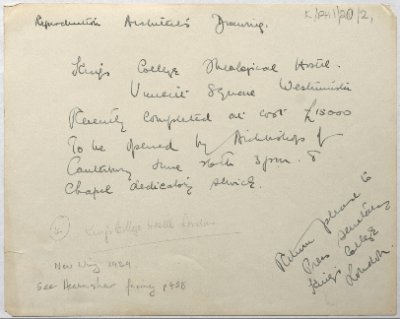 Reproduction Architect's Drawing.
K/PH1/20/2,
King's College Theological Hostel.
Vincent Square Westminster
Recently completed at cost £18000
To be opened by Archbishop of
Canterbury June 3 p.m. &
Chapel dedicatory service.
Return please to
Press Secretary
King's College
London.
King's College Hostel London
New Wing 1929
See Hearnshaw facing p458